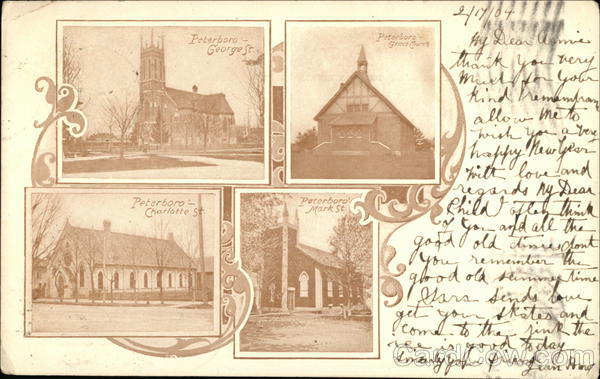 Peterboro -
George St.
Peterboro -
Grace Church
Peterboro -
Charlotte St.
Peterboro -
Mark St.
2/17/04
My Dear Annie
thank you very
much for your
kind remembrance
allow me to
wish you a very
happy New Year
with love and
regards My Dear
Child I often think
of you and all the
good old times dont
you remember the
good old summer time
sends love
get your skates and
come to the rink the
ice is good today
CardCow.com